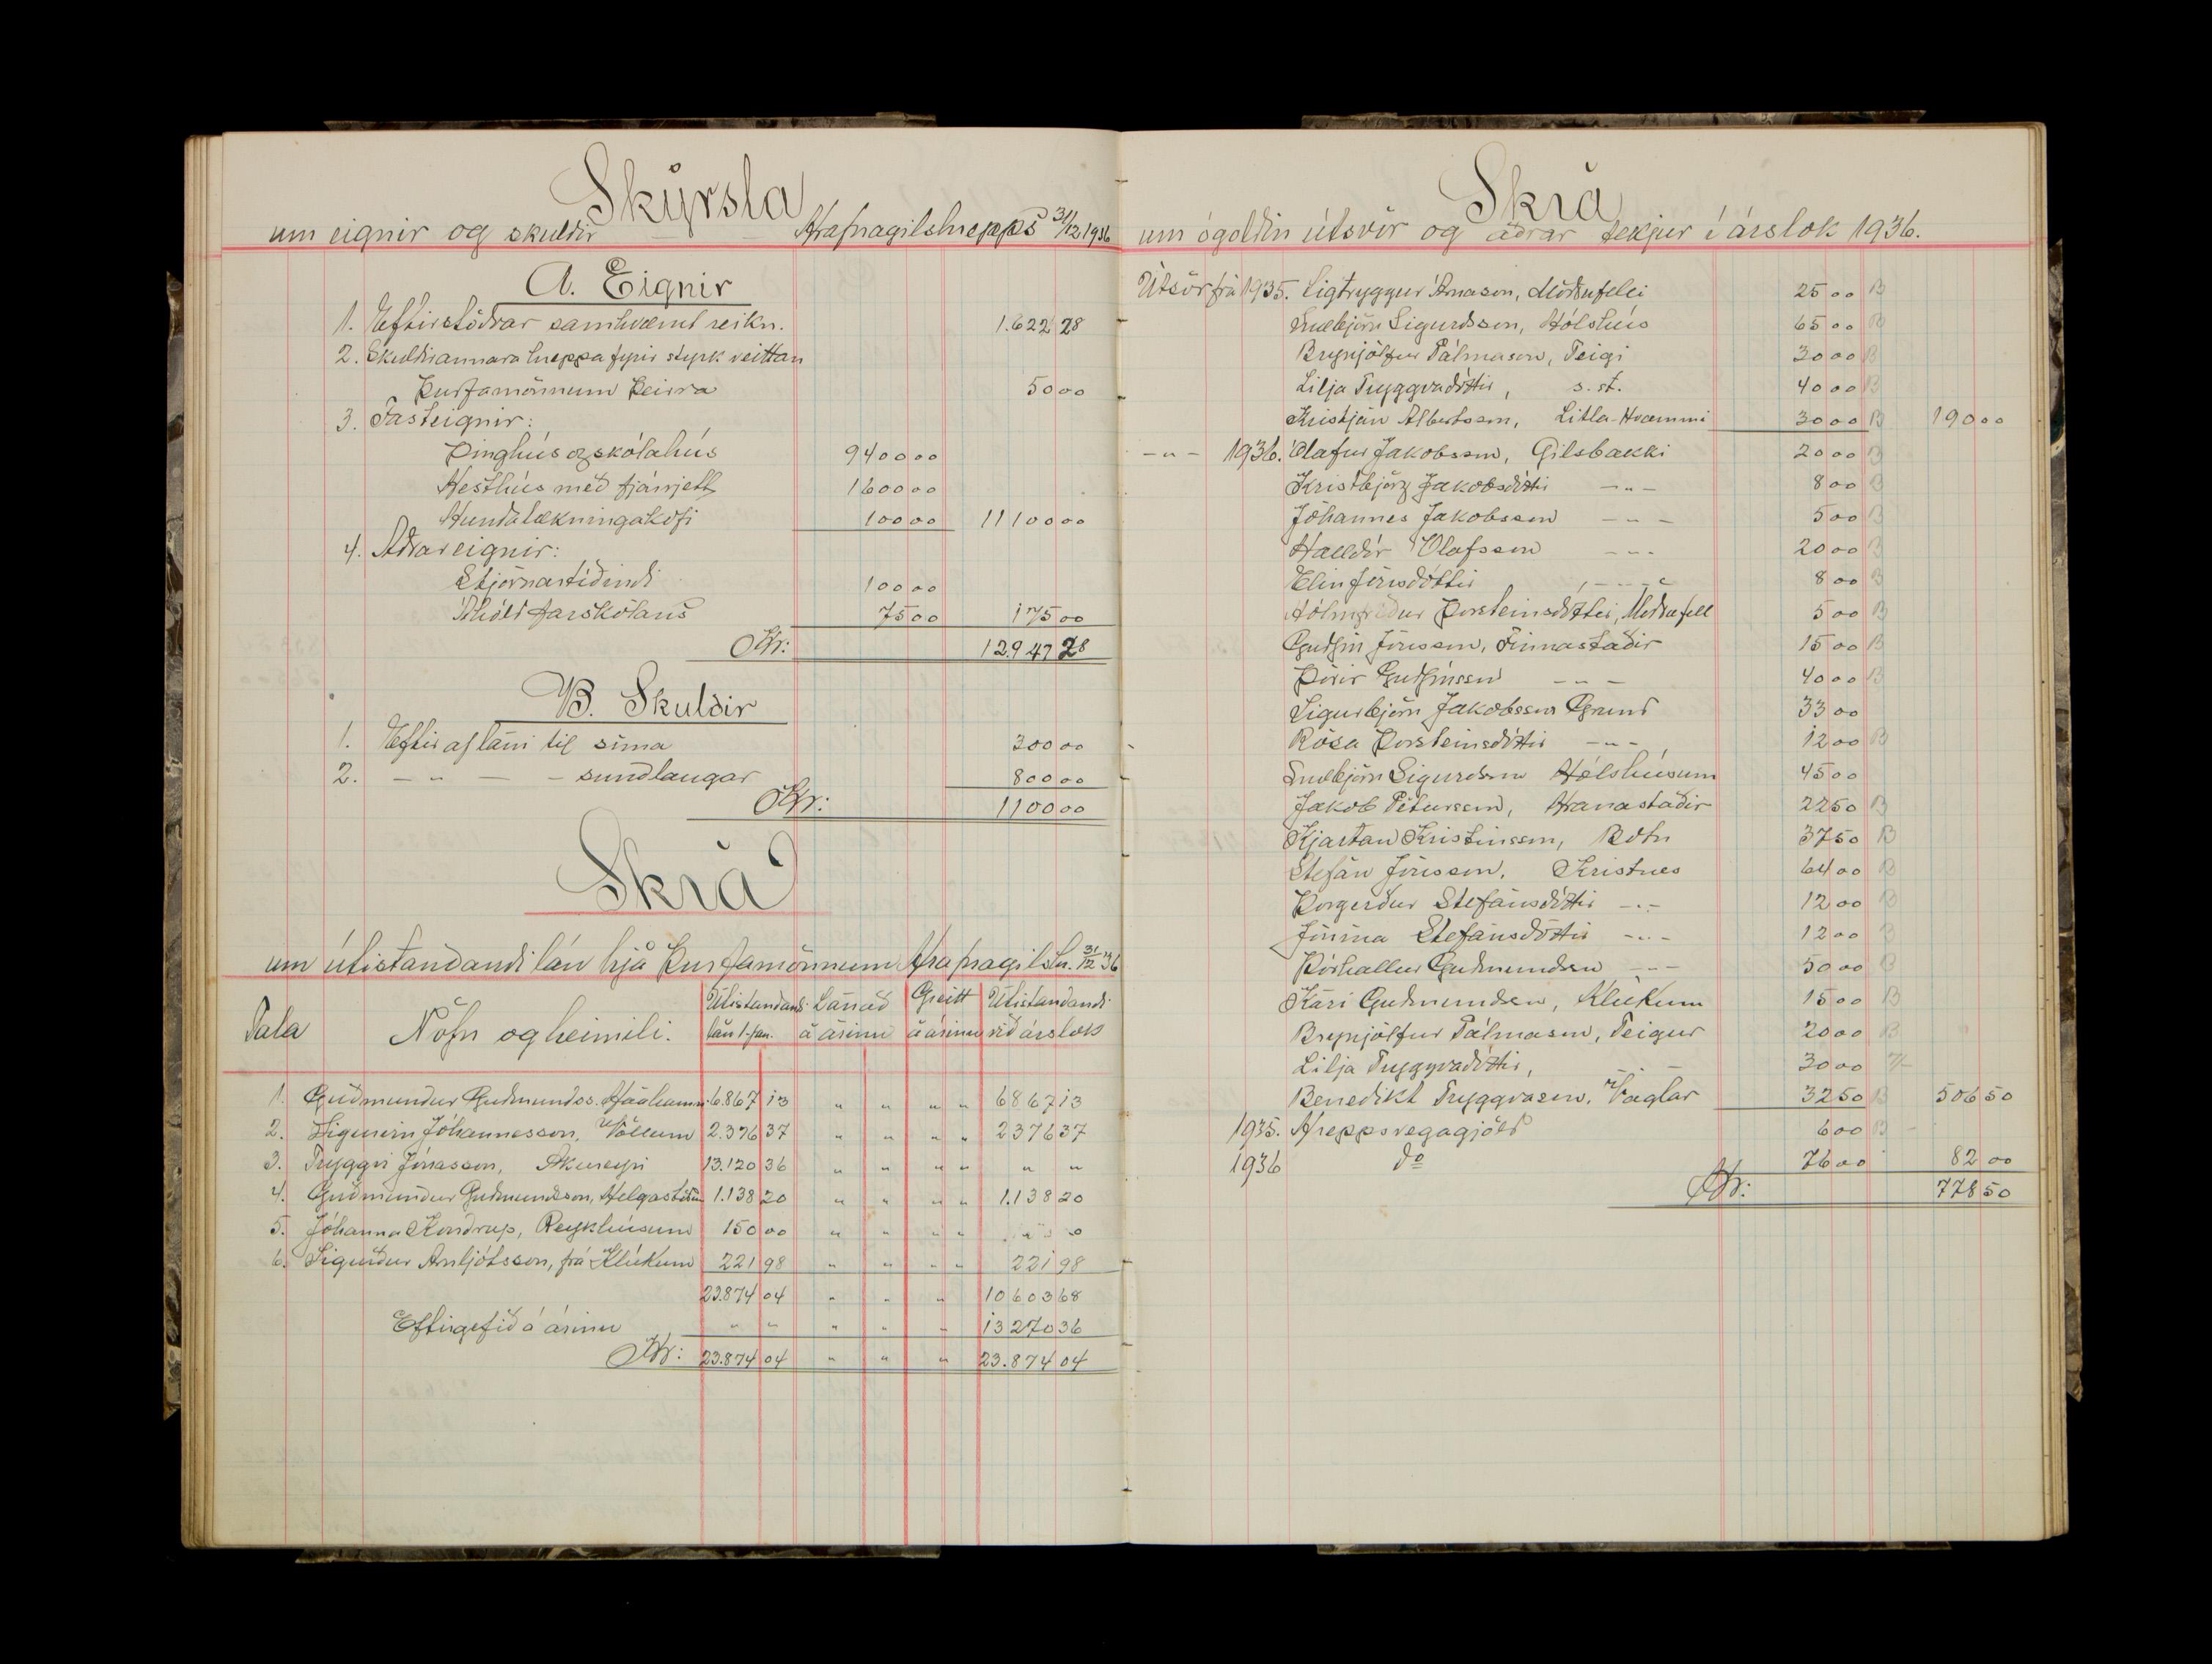 Skýrsla
um eignir og skuldir Hrafnagilshrepps 31/12 1936
A. Eignir
1. Eftirstöðvar samkvæmt reikn. 1.622 28
2. Skuldir annara hreppa fyrir styrk veittan
þurfamönnum þeirra 50 00
3. Fasteignir:
Þinghús og skólahús 9400 00
Hesthús með fjárrjett 1600 00
Hundalækningakofi 100 00 11100 00
4. Aðrar eignir:
Stjórnartíðindi 100 00
Áhöld farskólans 75 00 175 00
Kr: 12.947 28
B. Skuldir
1. Eftir af láni til síma 300 00
2. — „ — — sundlaugar 800 00
Kr: 1100 00
Skrá
um útistandandi lán hjá þurfamönnum Hrafnagilshr. 31/12 36
Tala Nöfn og heimili. Útistandandi lán 1. jan. Lánað á árinu Greitt á árinu Útistandandi við árslok
1. Guðmundur Guðmundss. Hááhamri 6.867 13 „ „ „ „ 6867 13
2. Sigurvin Jóhannesson, Völlum 2.376 37 „ „ „ „ 2376 37
3. Tryggvi Jónasson, Akureyri 13.120 36 „ „ „ „ „ „
4. Guðmundur Guðmundsson, Helgastöðum 1.138 20 „ „ „ „ 1.138 20
5. Jóhanna Kondrup, Reykhúsum 150 00 „ „ „ „
6. Sigurður Arnljótsson, frá Klúkum 221 98 „ „ „ „ 221 98
23.874 04 „ „ „ 10603 68
Eftirgefið á árinu „ „ „ „ „ 13270 36
Kr: 23.874 04 „ „ „ 23.874 04
Skrá
um ógoldin útsvör og aðrar tekjur í árslok 1936.
Útsvör frá 1935. Sigtryggur Árnason, Möðrufelli 25 00 B
Snæbjörn Sigurdsson, Hólshús 65 00 B
Brynjólfur Pálmason, Teigi 30 00 B
Lilja Tryggvadóttir, s. st. 40 00 B
Kristján Albertsson, Litla-Hvammi 30 00 B 190 00
— „ — 1936. Ólafur Jakobsson, Gilsbakki 20 00 B
Kristbjörg Jakobsdóttir — „ — 8 00 B
Jóhannes Jakobsson — „ — 5 00 B
Halldór Ólafsson — „ — 20 00 B
Elin Jónsdóttir — „ — 8 00 B
Hólmfríður Þorsteinsdóttir, Möðrufell 5 00 B
Guðjón Jónsson, Finnastaðir 15 00 B
Þórir Guðjónsson — „ — 40 00 B
Sigurbjörn Jakobsson Grund 33 00
Rósa Þorsteinsdóttir — „ — 12 00 B
Snæbjörn Sigurdsson Hólshúsum 45 00
Jakob Pétursson, Hranastaðir 22 50 B
Kjartan Kristinsson, Botn 37 50 B
Stefán Jónsson, Kristnes 64 00 B
Þorgerður Stefánsdóttir — „ — 12 00 B
Jónína Stefánsdóttir — „ — 12 00 B
Þórhallur Guðmundsson — „ — 50 00 B
Kári Guðmundsson, Klúkum 15 00 B
Brynjólfur Pálmason, Teigur 20 00 B
Lilja Tryggvadóttir, — „ — 30 00
Benedikt Tryggvason, Vaglar 32 50 B 506 50
1935. Hreppsvegagjöld 6 00 B
1936 do 76 00 82 00
Kr: 778 50